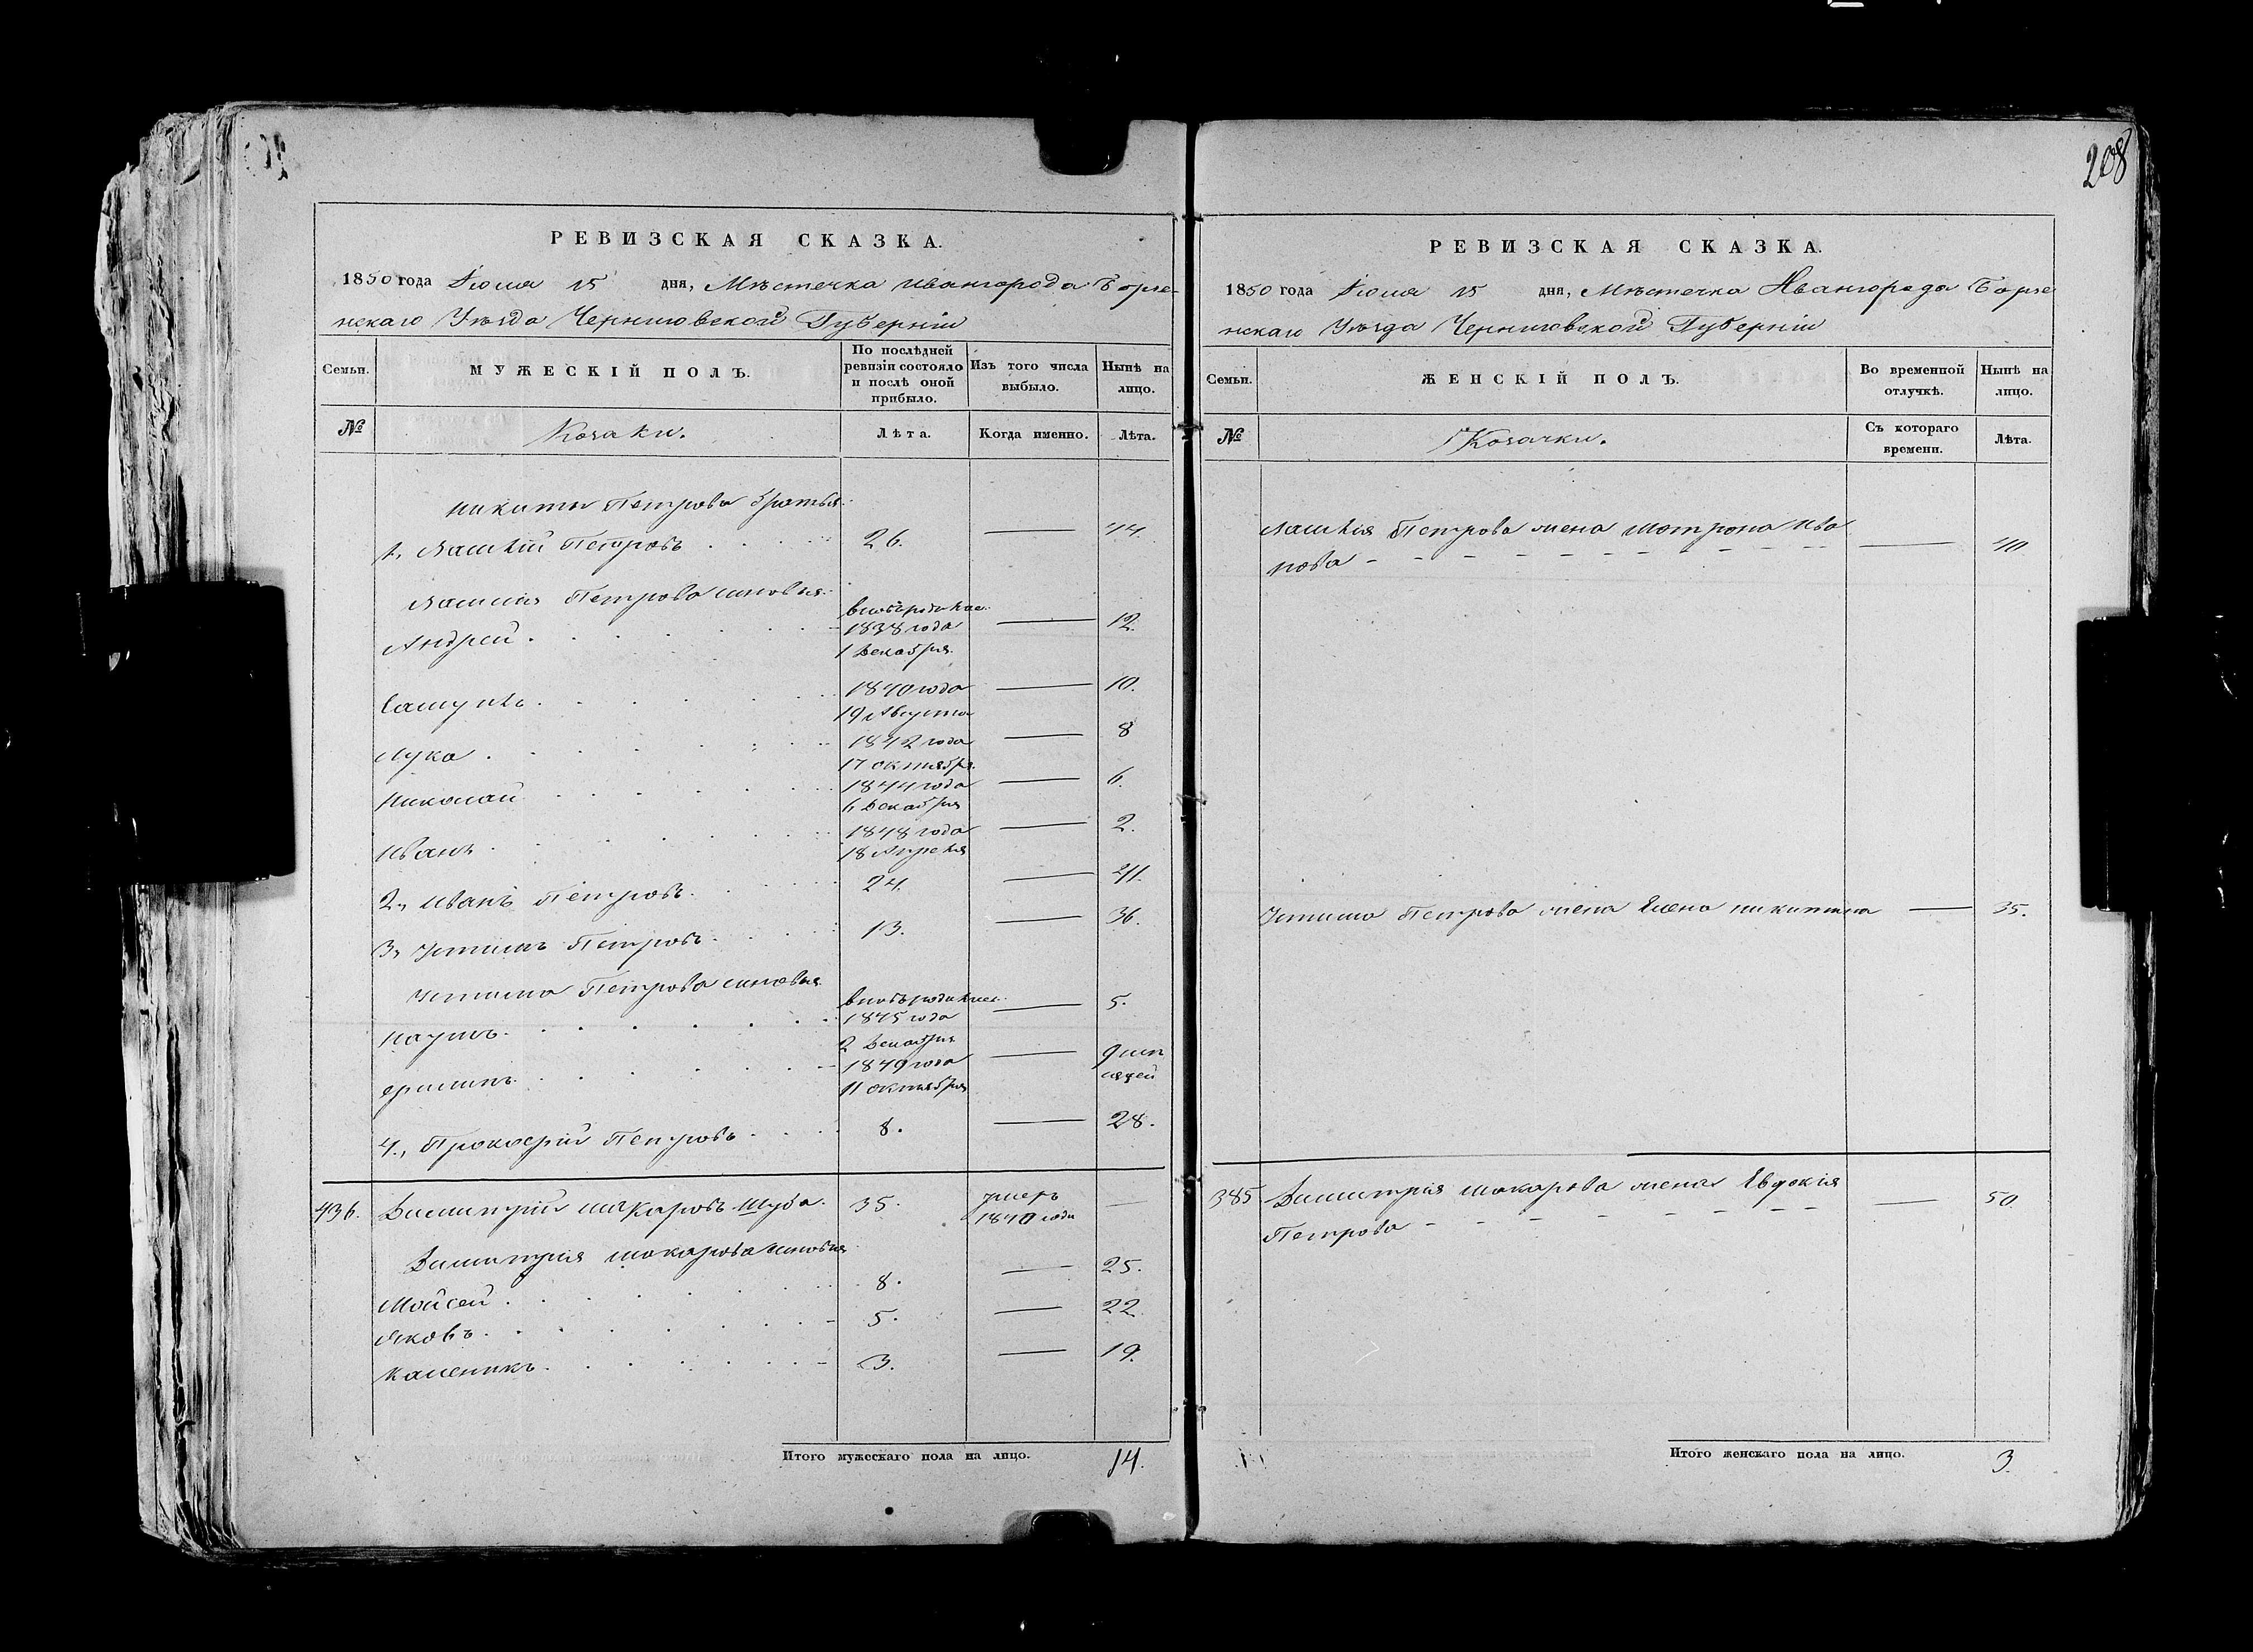 208
РЕВИЗСКАЯ СКАЗКА.
1850 года Іюля 15 дня, Мѣстечка Ивангорода Борзе-
нскаго Уѣзда Черниговской Губерніи
Семьи.
МУЖЕСКІЙ ПОЛЪ.
По послѣдней ревизіи состояло и послѣ оной прибыло.
Изъ того числа выбыло.
Нынѣ на лицо.
№
Козаки.
Лѣта.
Когда именно.
Лѣта.
Никиты Петрова братья
1, Петровъ 26. 44.
Петрова сыновья
Андрей 1838 года 1 Декабря 12.
1840 года 19 Августа 10.
Лука 1842 года 17 октября 8
Николай 1844 года 6 Декабря 6.
Иванъ 1848 года 18 Апреля 2.
2, Иванъ Петровъ 24. 41.
3, Устимъ Петровъ 13. 36.
Устима Петрова сыновья
Наумъ 1845 года 2 Декабря 5.
1849 года 11 октября 9
4, Прокофій Петровъ 8. 28.
436. Димитрій Макаровъ Шуба 35. умеръ 1840 года
Димитрія Макарова сыновья
Мойсей 8. 25.
Яковъ 5. 22.
Каленикъ 3. 19.
Итого мужескаго пола на лицо. 14.
РЕВИЗСКАЯ СКАЗКА.
1850 года Іюля 15 дня, Мѣстечка Ивангорода Борзе
нскаго Уѣзда Черниговской Губерніи
Семьи.
ЖЕНСКІЙ ПОЛЪ.
Во временной отлучкѣ.
Нынѣ на лицо.
№
Козачки.
Съ котораго времени.
Лѣта.
Петрова жена Мотрона Ива
нова 40
Устима Петрова жена Елена Никитина 35.
385 Димитрія Макарова жена Евдокія
Петрова 50.
Итого женскаго пола на лицо. 3.